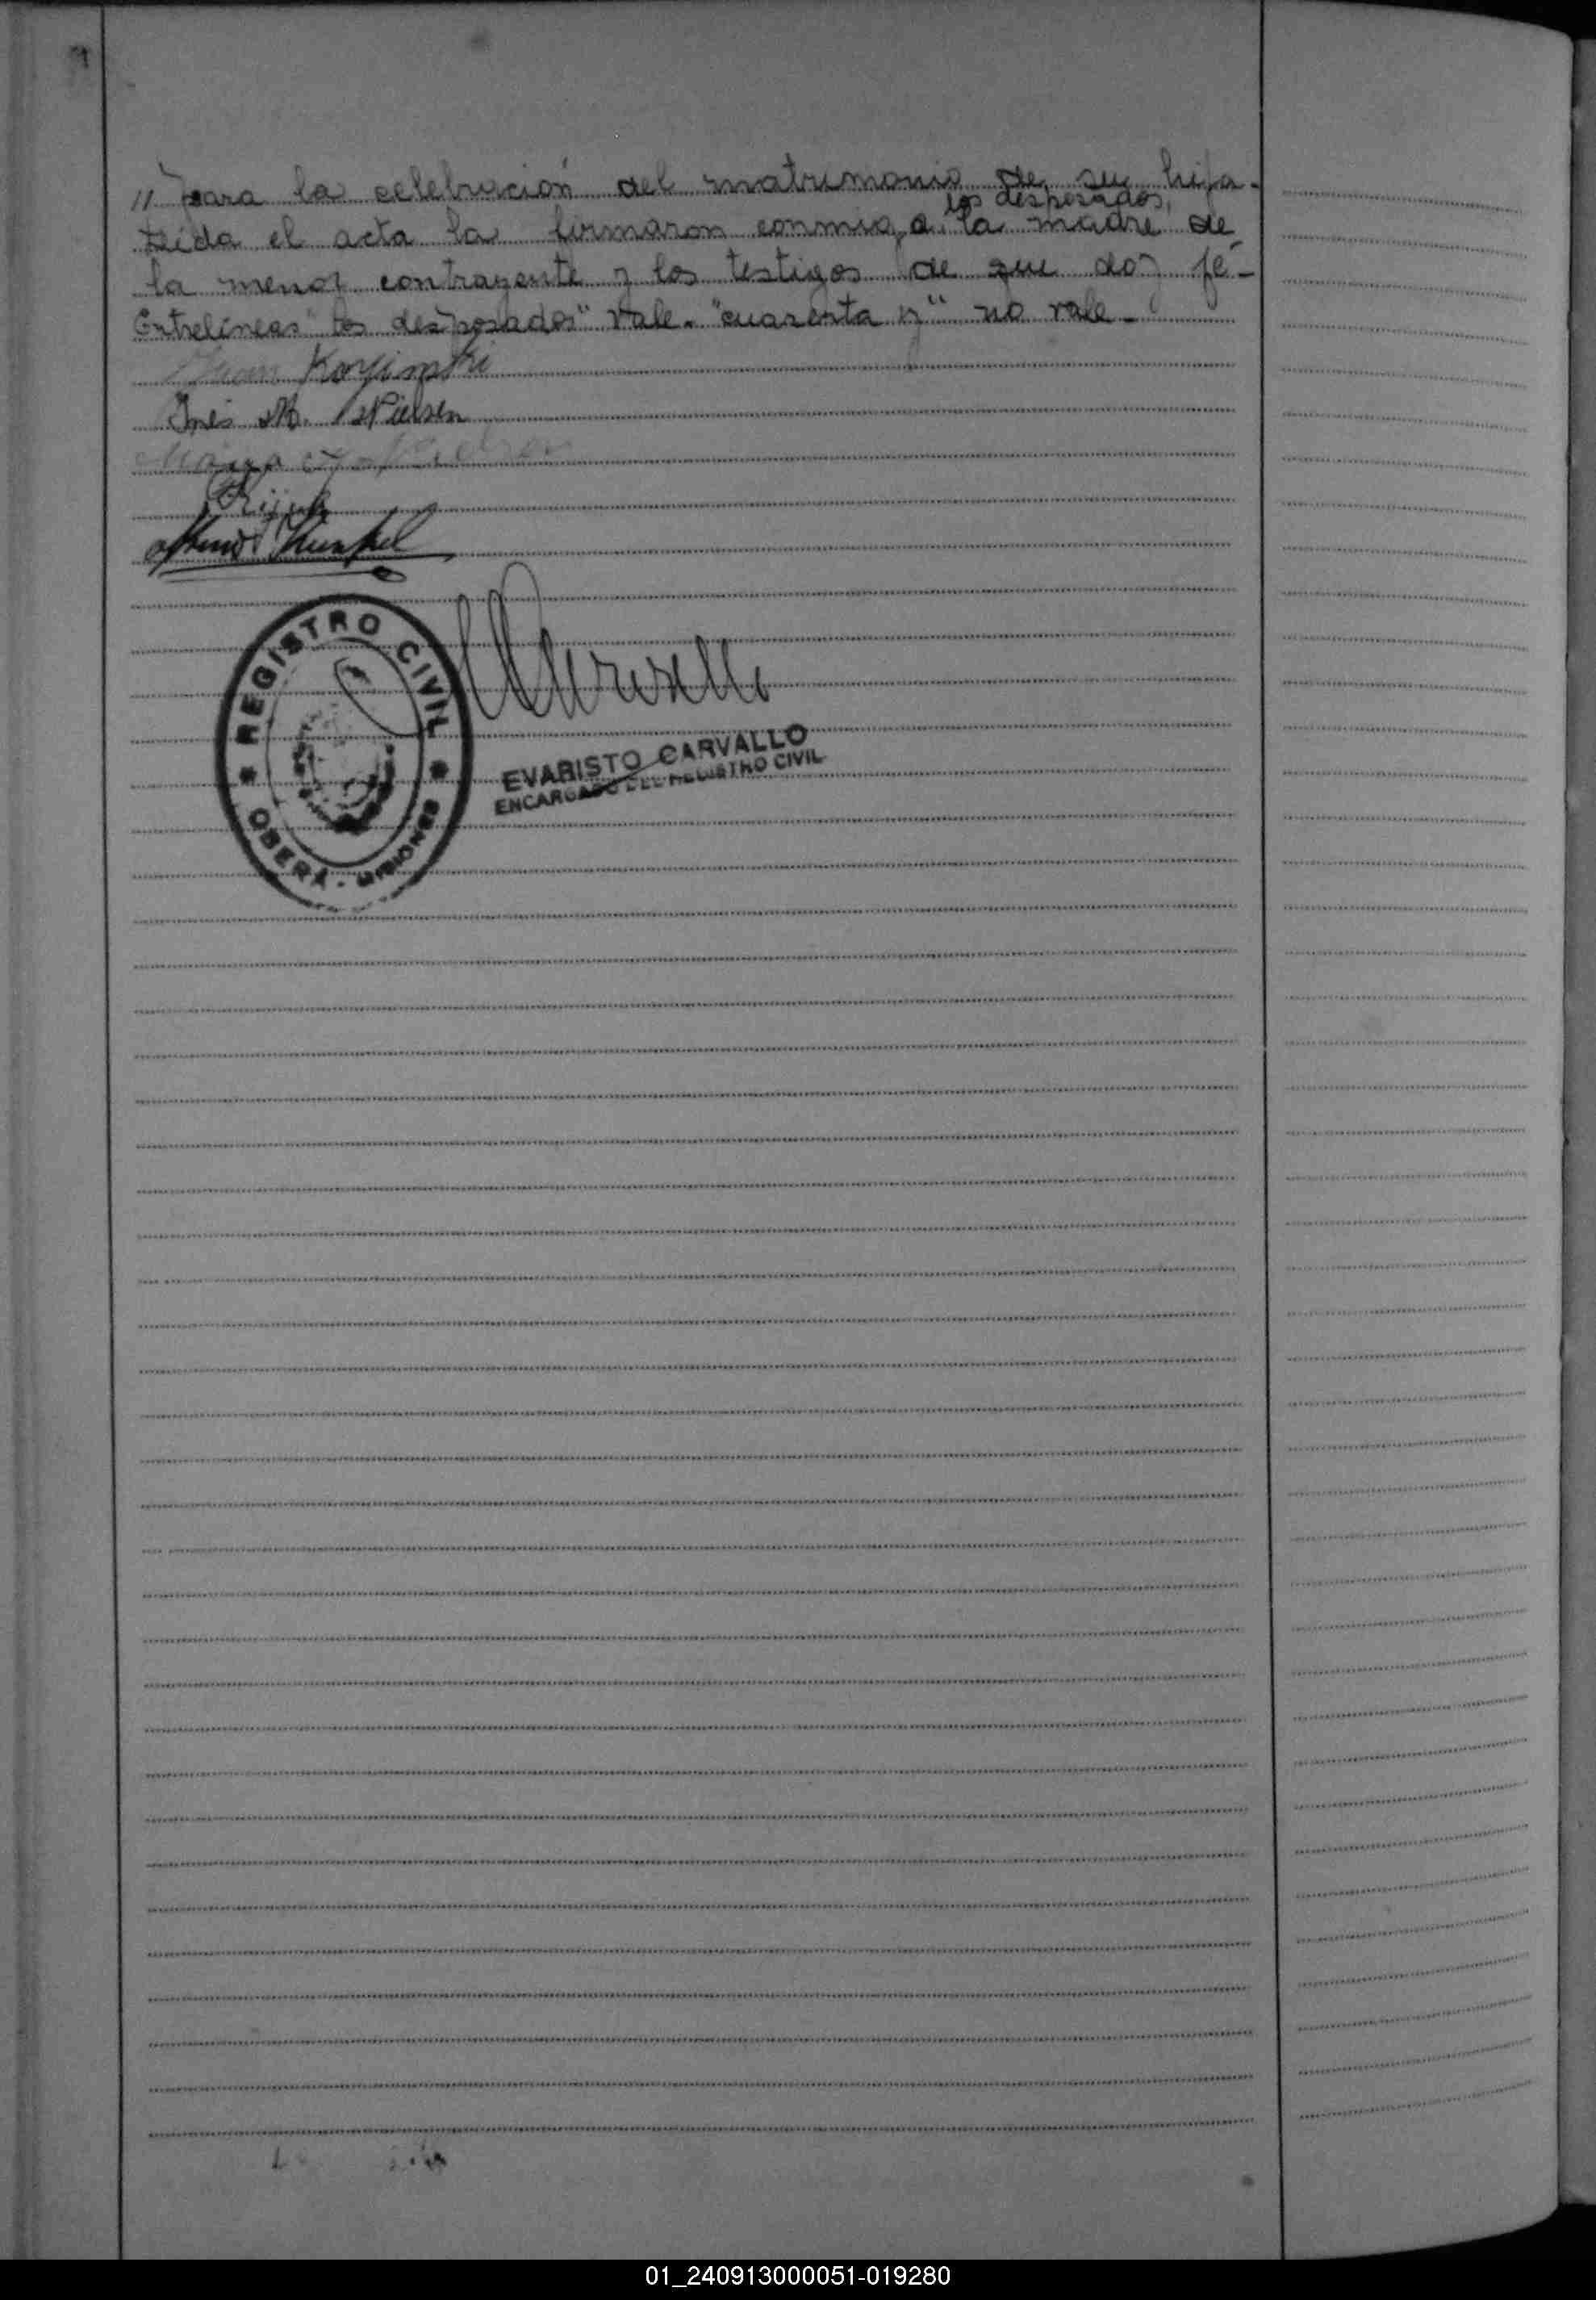 // para la celebración del matrimonio de su hija.
los desposados,
Leída el acta la firmaron conmigo, a la madre de
la menor contrayente y los testigos de que doy fé-
Entrelíneas "los desposados" vale. "cuarenta y" no vale-
Juan Kozimski
Inés M. Nielsen
REGISTRO CIVIL
OBERÁ - MISIONES
EVARISTO CARVALLO
ENCARGADO DEL REGISTRO CIVIL
01_240913000051-019280